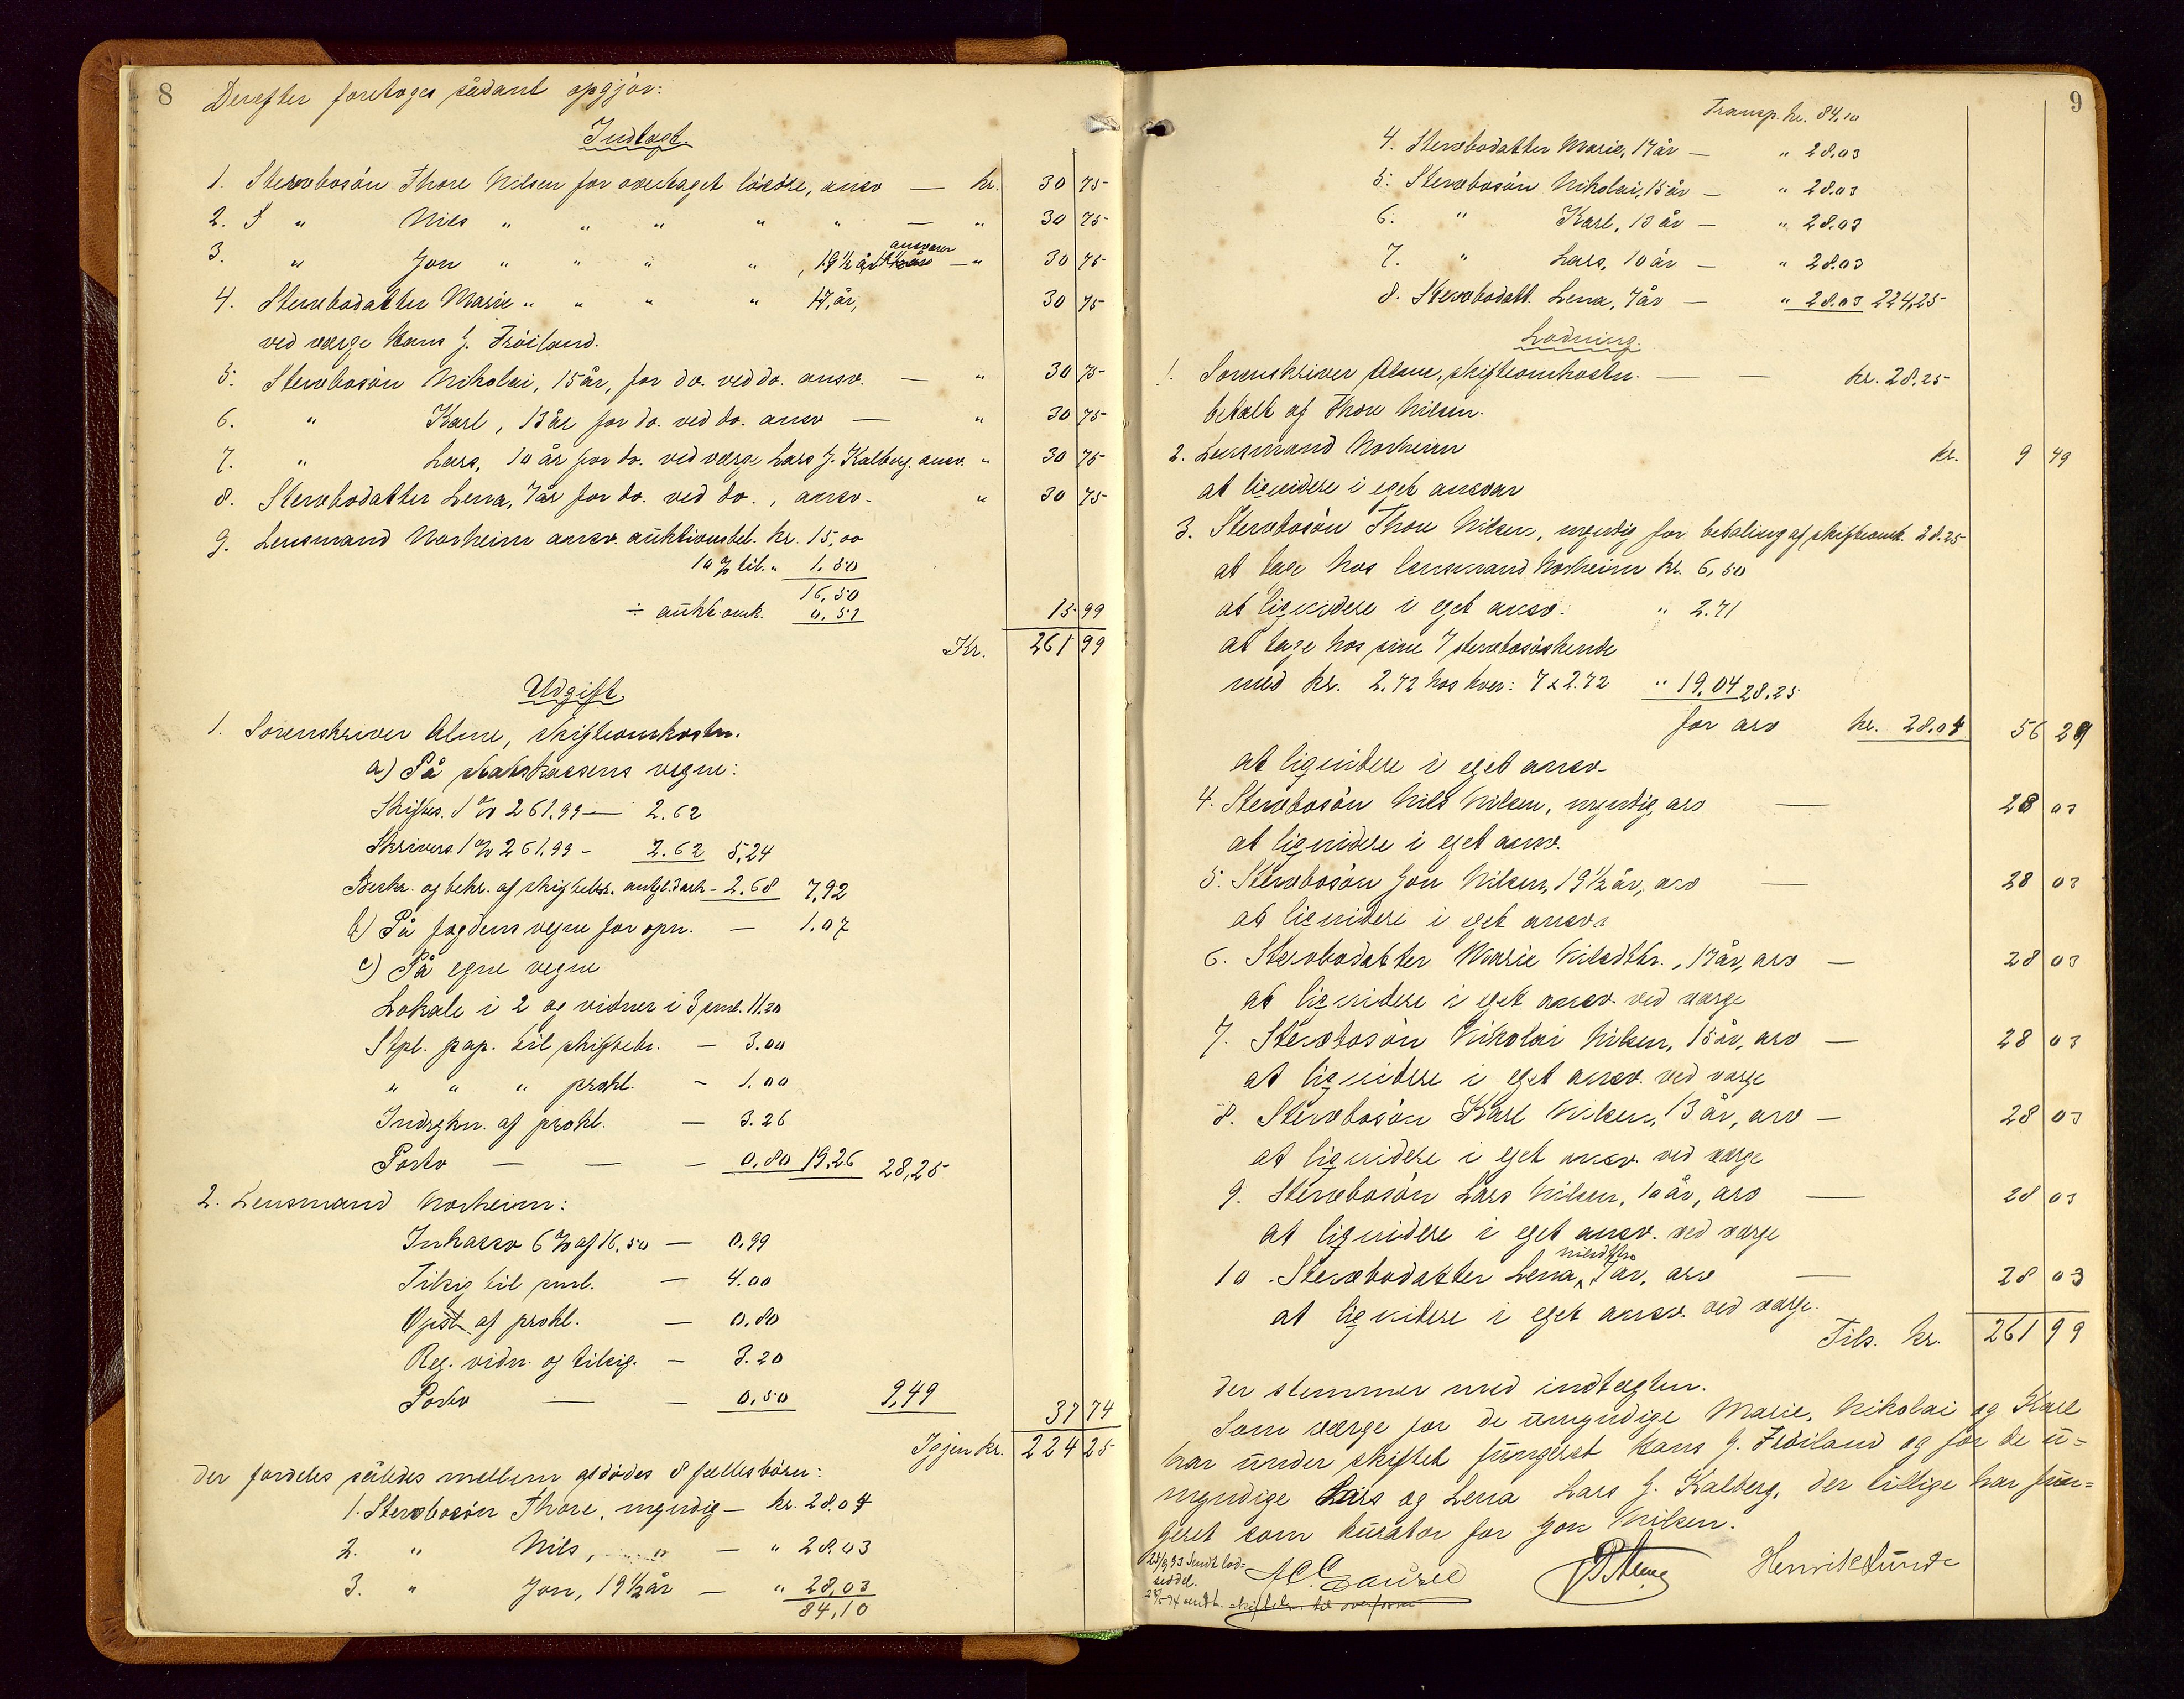 8
Derefter foretoges sådant opgjör:
Indtægt
1. Stervbosön Thore Nilsen for overtaget lösöre, ansv — kr. 30 75
2. S " Nils " " " " " — " 30 75
3. " Jon " " " " , 19½ år, ansvarer — " 30 75
4. Stervbodatter Marie " " " " 17 år, 30 75
ved værge Hans J. Fröiland.
5. Stervbosön Nikolai, 15 år, for do. ved do. ansv. — " 30 75
6. " Karl, 13 år for do. ved do. ansv — " 30 75
7. " Lars, 10 år for do. ved værge Lars J. Kalberg. ansv. " 30 75
8. Stervbodatter Lena, 7 år for do. ved do., ansv. " 30 75
9. Lensmand Norheim ansv. auktionsbel. kr. 15,00
10 % til. " 1.50
16,50
÷ aukt. omk. 0,51 15 99
Kr. 261 99
Udgift
1. Sorenskriver Alme, skifteomkostn.
a) På statskassens vegne:
Skiftes. 1 % 261.99 — 2.62
Skrivers. 1 % 261.99 - 2.62 5,24
Beskr. og bekr. af skiftebr. antgl. 2 ark - 2.68 7,92
b) På fogdens vegne for opn. — 1.07
c) På egne vegne
Lokale i 2 og vidner i 3 saml. 11.20
Stpl. pap. til skiftebr. — 3.00
" " " prokl. - 1.00
Indrykn. af prokl. — 3.26
Porto — — — 0,80 19,26 28,25
2. Lensmand Norheim:
Inkasso 6 % af 16,50 — 0,99
Tilsig til saml. — 4.00
Opsl. af prokl. — 0.80
Reg. vidn. og tilsig. — 3.20
Porto — — 0,50 9,49 37 74
Igjen kr. 224 25
der fordeles således mellem afdödes 8 fællesbörn:
1. Stervbosön Thore, myndig — kr. 28.04
2. " Nils, " — " 28.03
3. " Jon, 19½ år — " 28,03
84,10
9
Transp. kr. 84,10
4. Stervbodatter Marie, 17 år — " 28.03
5. Stervbosön Nikolai, 15 år — " 28.03
6. " Karl, 13 år — " 28.03
7. " Lars, 10 år — " 28.03
8. Stervbodatt. Lena, 7 år — " 28.03 224,25
Lodning.
1. Sorenskriver Alme, skifteomkostn. — — kr. 28.25
betalt af Thore Nilsen.
2. Lensmand Norheim kr. 9 49
at liqvidere i eget ansvar
3. Stervbosön Thore Nilsen, myndig for betaling af skifteomk. 28.25
at tage hos lensmand Norheim kr. 6,50
at liqvidere i eget ansv. " 2.71
at tage hos sine 7 stervbosöskende
med kr. 2.72 hos hver: 7 x 2.72 " 19,04 28,25
for arv kr. 28.04 56 29
at liqvidere i eget ansv.
4. Stervbosön Nils Nilsen, myndig, arv — 28 03
at liqvidere i eget ansv.
5. Stervbosön Jon Nilsen, 19½ år, arv — 28 03
at liqvidere i eget ansv.
6. Stervbodatter Marie Nilsdtr., 17 år, arv — 28 03
at liqvidere i eget ansv. ved værge
7. Stervbosön Nikolai Nilsen, 15 år, arv — 28 03
at liqvidere i eget ansv. ved værge
8. Stervbosön Karl Nilsen, 13 år, arv — 28 03
at liqvidere i eget ansv. ved værge
9. Stervbosön Lars Nilsen, 10 år, arv — 28 03
at liqvidere i eget ansv. ved værge
10. Stervbodatter Lena Nilsdtr., 7 år, arv — 28 03
at liqvidere i eget ansv. ved værge.
Tils. kr. 261 99
der stemmer med indtægten.
Som værge for de umyndige Marie, Nikolai og Karl
har under skiftet fungeret Hans J. Fröiland og for de u-
myndige Lars og Lena Lars J. Kalberg, der tillige har fun-
geret som kurator for Jon Nilsen.
25/9 93 Sendt lod-
seddel.
Henrik Lunde